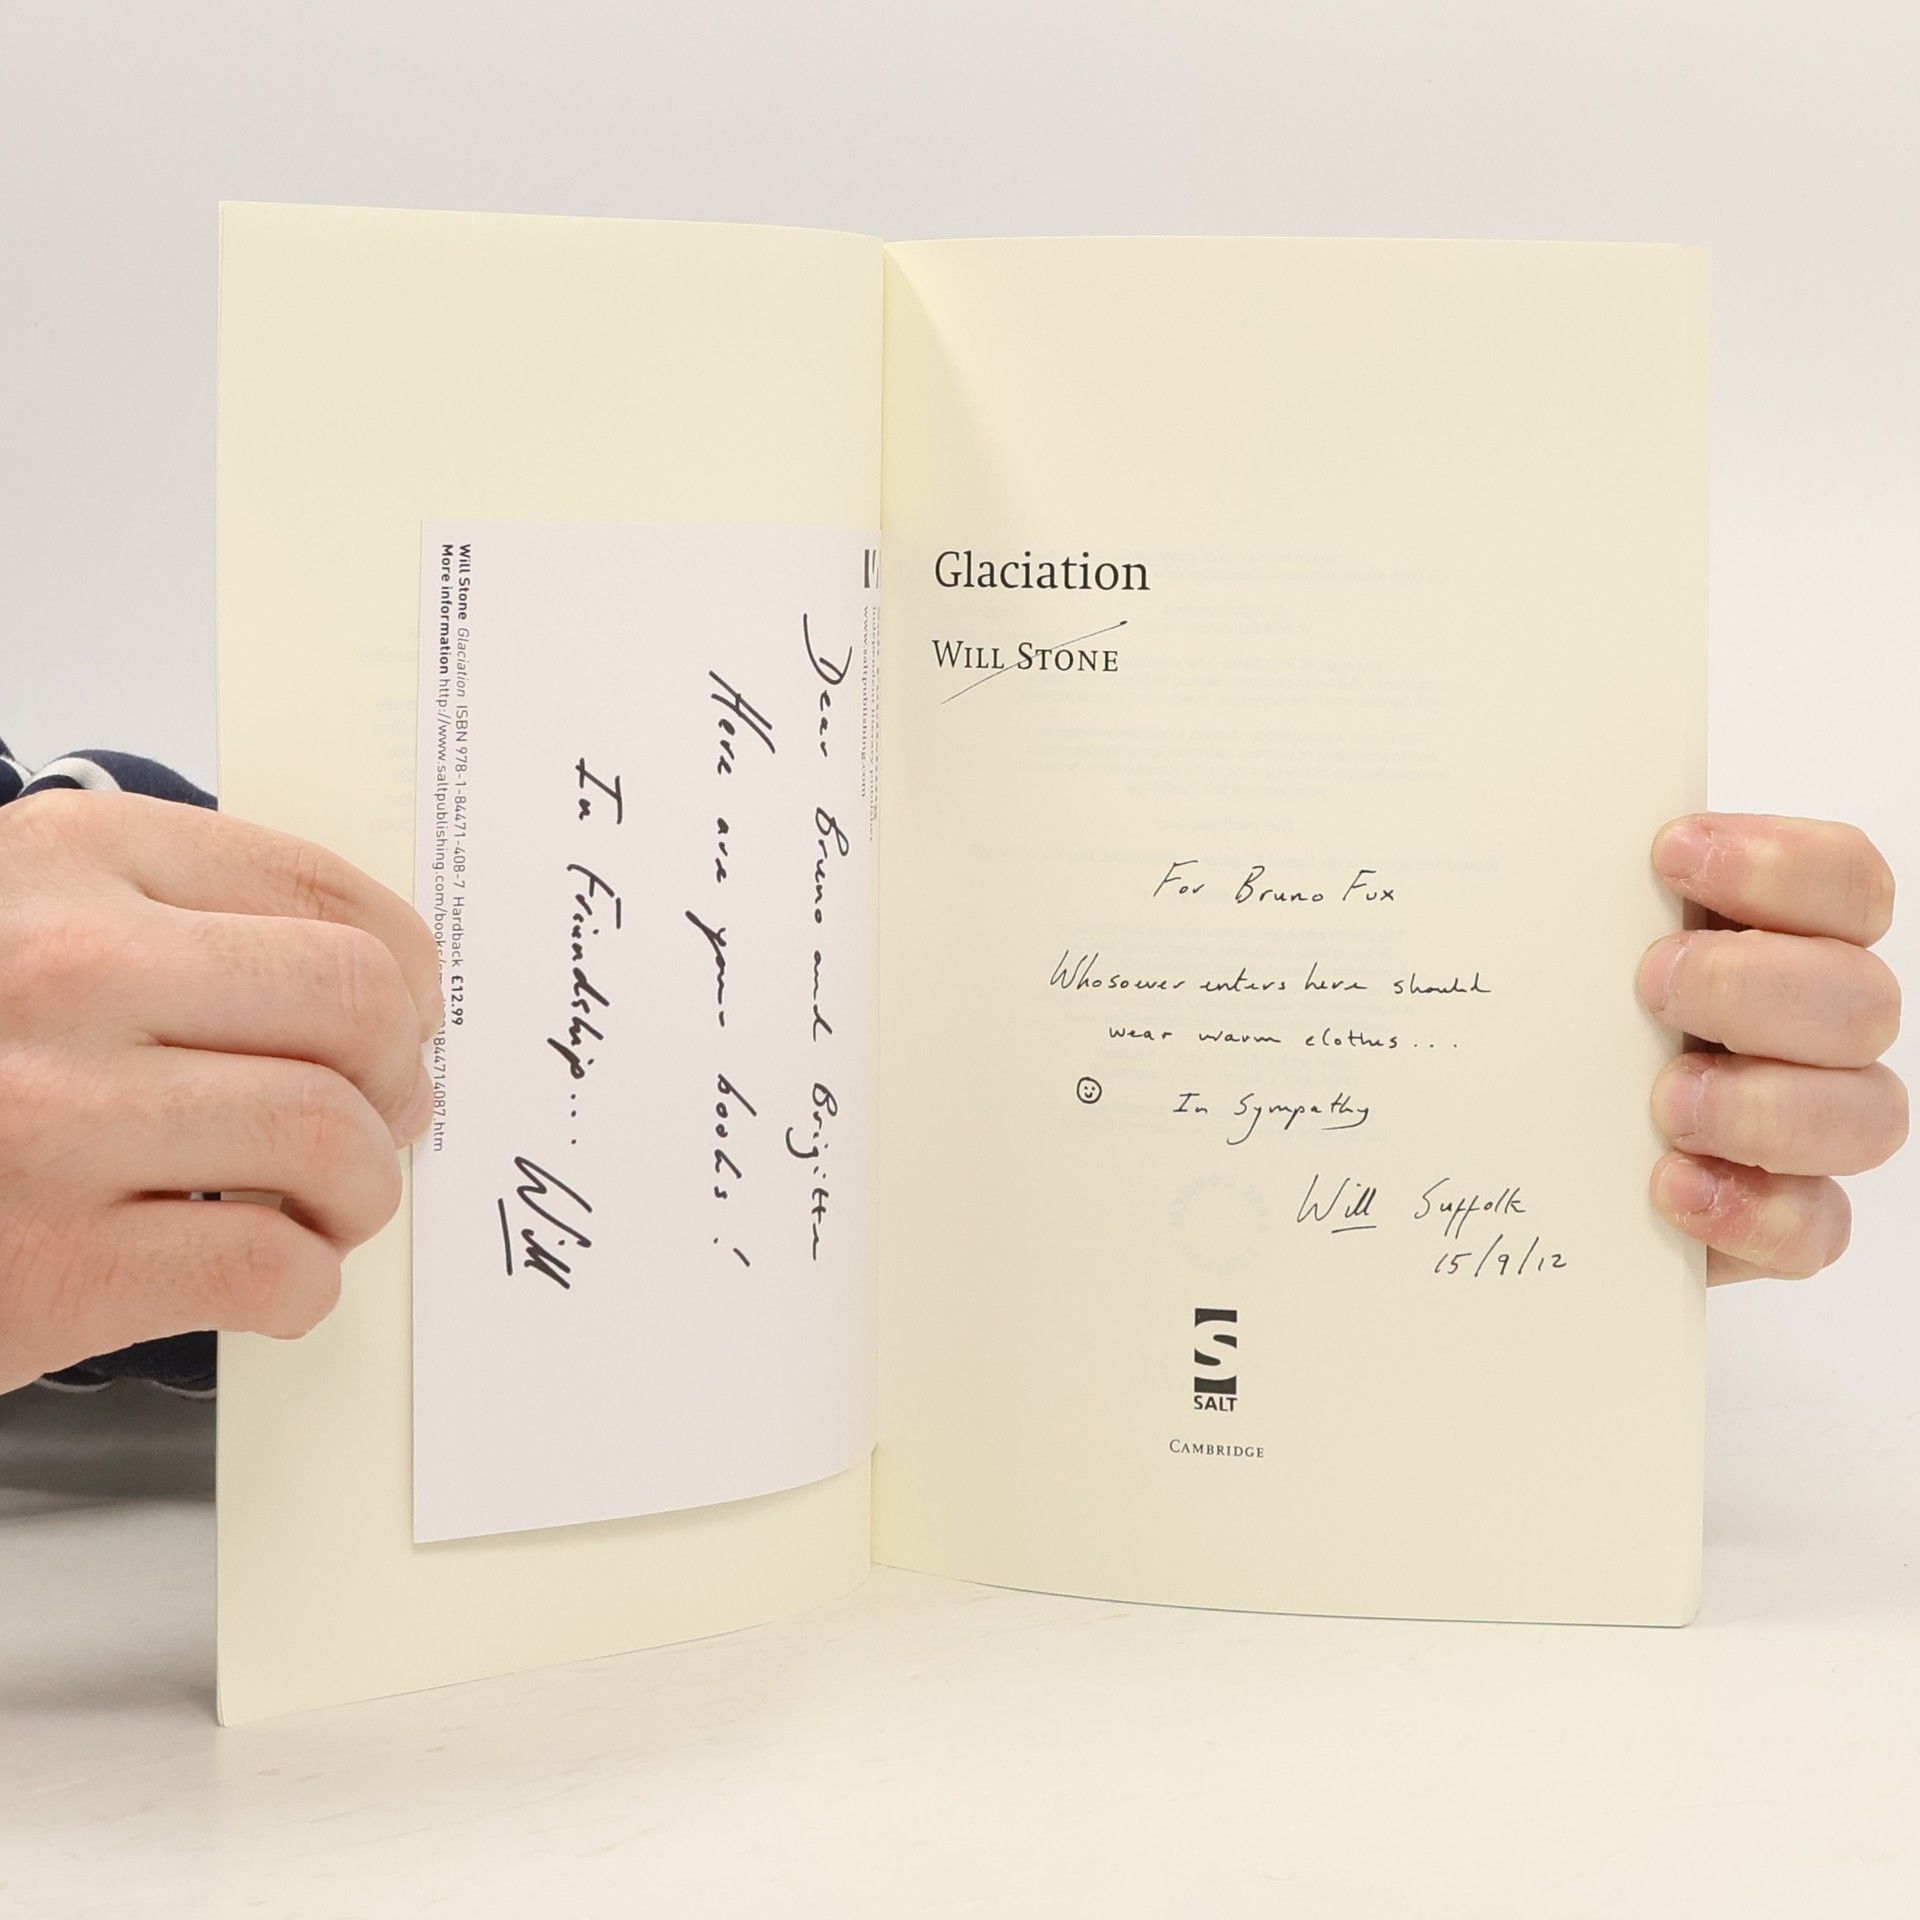 www.saltpublishing.com
Dear Bruno and Brigitte
Here are your books!
In Friendship...
Will
Will Stone Glaciation ISBN 978-1-84471-408-7 Hardback £12.99
More information http://www.saltpublishing.com/books/
844714087.htm
Glaciation
WILL STONE
For Bruno Fux
Whosoever enters here should
wear warm clothes...
In Sympathy
Will Suffolk
15/9/12
SALT
CAMBRIDGE